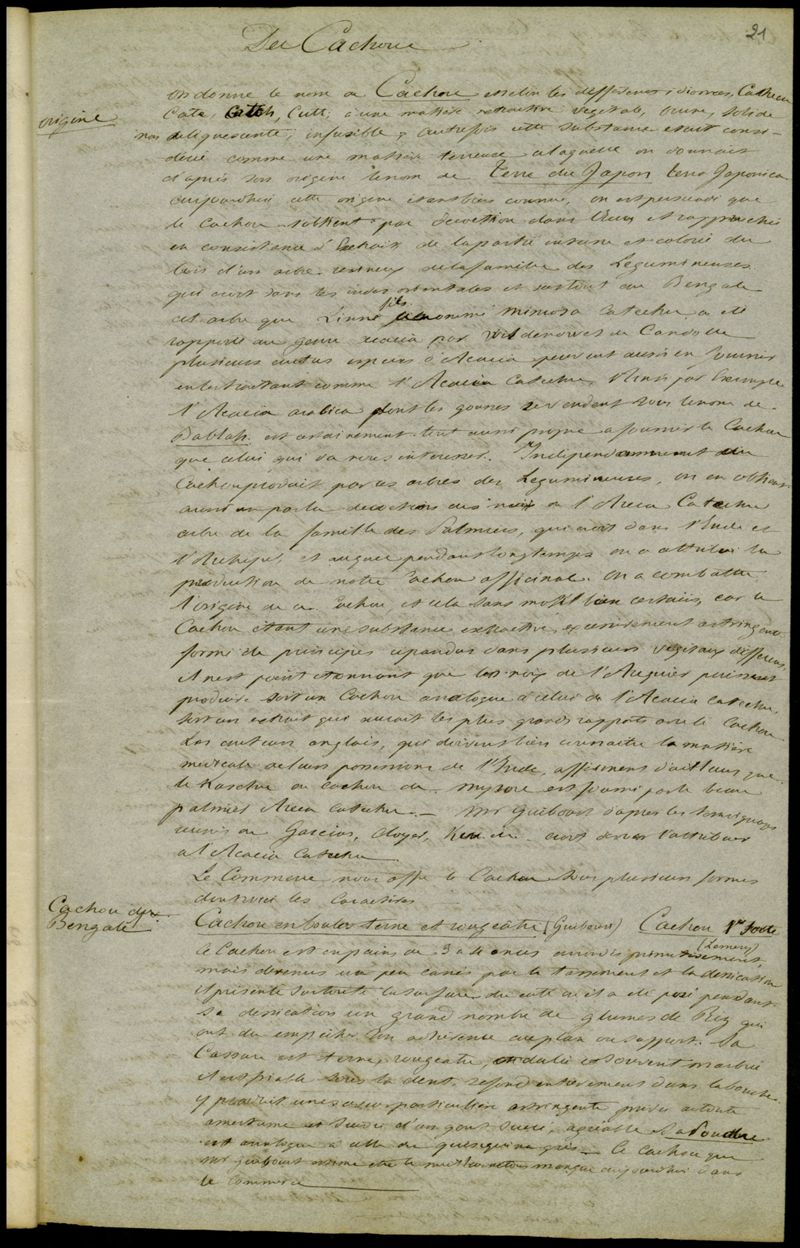 21
Du Cachou
origine
on donne le nom de Cachou et selon les differents idiomes, Catheu
Cate Catch, Cutt, a une matière extractive vegetale, brune, solide
non deliquescente, infusible, autrefois cette substance etait consi-
derée comme une matière terreuse a laquelle on donnait
d'après son origine le nom de terre du Japon terra Japonica
aujourdhui cette origine etant bien connue, on est persuadé que
le Cachou s'obtient par decoction dans l'eau et rapproché
en consistance d'Extrait de la partie interne et colorée du
bois d'un arbre de la famille des Legumineuses
qui croit dans les indes orientales et surtout au Bengale
cet arbre que Linné fils a nommé mimosa catechu a été
rapporté au genre acacia par Wildenow et de Candolle
plusieurs autres especes d'Acacia peuvent aussi en fournir
en les traitant comme l'Acacia Catechu, Ainsi par Exemple
l'Acacia arabica dont les gousses se vendent sous le nom de
Bablah est certainement tout aussi propre a fournir le Cachou
que celui qui va nous interesser. Independamment du
Cachou produit par les arbres des Legumineuses, on en obtient
aussi un par la decoction des noix de l'Areca Catechu
arbre de la famille des Palmiers, qui croit dans l'Inde et
l'Archipel, et auquel pendant longtemps on a attribué la
production de notre Cachou officinal. On a combattu
l'origine de ce Cachou et cela sans motif bien certain, car le
Cachou etant une substance extractive, excessivement astringente
formée de principes repandus dans plusieurs vegetaux differens,
il n'est point etonnant que les noix de l'Arequier puissent
produire soit un Cachou analogue a celui de l'Acacia catechu,
soit un extrait qui aurait les plus grands rapports avec le Cachou
Les auteurs anglais, qui doivent bien connaitre la matière
medicale de leurs possessions de l'Inde, affirment d'ailleurs que
le Kaschu ou cachou du mysore est fourni par le beau
palmier Areca catechu. — Mr Guibourt d'après les temoignages
reunis de Garcias, Cloyer, Kerr &c croit devoir l'attribuer
a l'Acacia Catechu
Le Commerce nous offre le Cachou sous plusieurs formes
dont voici les caractères
Cachou du
Bengale
Cachou en boules terne et rougeatre (Guibourt) Cachou 1re Sorte
(Lemery)
Ce Cachou est en pains de 3 a 4 onces arrondis primitivement
mais devenus un peu carrés par le tassement et la dessication
il presente sur toute la surface du coté où il a été posé pendant
sa dessication un grand nombre de glumes de Riz qui
ont du empecher son adherence au plan ou support. Sa
Cassure est terne, rougeatre, ondulée et souvent marbrée
il est friable sous la dent, se fond entierement dans la bouche
y produit une saveur particulière astringente privée de toute
amertume et suivie d'un gout sucré, agreable. Sa Poudre
est analogue a celle du quinquina gris — Ce Cachou que
Mr Guibourt estime etre le meilleur manque aujourdhui dans
le commerce